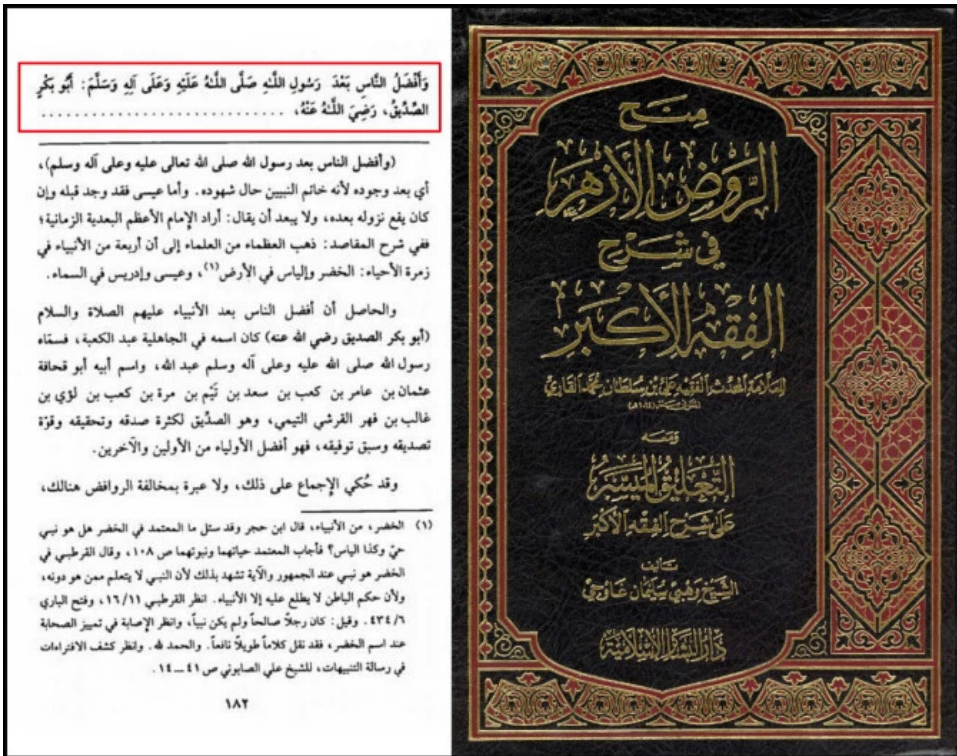 وَأَفْضَلُ النَّاسِ بَعْدَ رَسُولِ اللَّهِ صَلَّى اللَّهُ عَلَيْهِ وَعَلَى آلِهِ وَسَلَّمَ: أَبُو بَكْرٍ
الصِّدِّيقُ، رَضِيَ اللَّهُ عَنْهُ، ..............................
(وأفضل الناس بعد رسول الله صلى الله تعالى عليه وعلى آله وسلم)،
أي بعد وجوده لأنه خاتم النبيين حال شهوده. وأما عيسى فقد وجد قبله وإن
كان يقع نزوله بعده، ولا يبعد أن يقال: أراد الإمام الأعظم البعدية الزمانية؛
ففي شرح المقاصد: ذهب العظماء من العلماء إلى أن أربعة من الأنبياء في
زمرة الأحياء: الخضر وإلياس في الأرض(١)، وعيسى وإدريس في السماء.
والحاصل أن أفضل الناس بعد الأنبياء عليهم الصلاة والسلام
(أبو بكر الصديق رضي الله عنه) كان اسمه في الجاهلية عبد الكعبة، فسمّاه
رسول الله صلى الله عليه وعلى آله وسلم عبد الله، واسم أبيه أبو قحافة
عثمان بن عامر بن كعب بن سعد بن تَيْم بن مرة بن كعب بن لؤي بن
غالب بن فهر القرشي التيمي، وهو الصدّيق لكثرة صدقه وتحقيقه وقوّة
تصديقه وسبق توفيقه، فهو أفضل الأولياء من الأولين والآخرين.
وقد حُكي الإجماع على ذلك، ولا عبرة بمخالفة الروافض هنالك،
(١) الخضر، من الأنبياء، قال ابن حجر وقد سئل ما المعتمد في الخضر هل هو نبي
حيّ وكذا الياس؟ فأجاب المعتمد حياتهما ونبوتهما ص ١٠٨، وقال القرطبي في
الخضر هو نبي عند الجمهور والآية تشهد بذلك لأن النبي لا يتعلم ممن هو دونه،
ولأن حكم الباطن لا يطلع عليه إلا الأنبياء. انظر القرطبي ١٦/١١، وفتح الباري
٤٣٤/٦. وقيل: كان رجلاً صالحاً ولم يكن نبياً، وانظر الإصابة في تمييز الصحابة
عند اسم الخضر، فقد نقل كلاماً طويلاً نافعاً. والحمد لله. وانظر كشف الافتراءات
في رسالة التنبيهات، للشيخ علي الصابوني ص ٤١ــ١٤.
١٨٢
منح
الروض الأزهر
في شرح
الفقه الأكبر
للعلامة المحدث الفقيه علي بن سلطان محمد القاري
المتوفى سنة (١٠١٤هـ)
ومعه
التعليق الميسر
على شرح الفقه الأكبر
تأليف
الشيخ وهبي سليمان غاوجي
دار البشائر الإسلامية